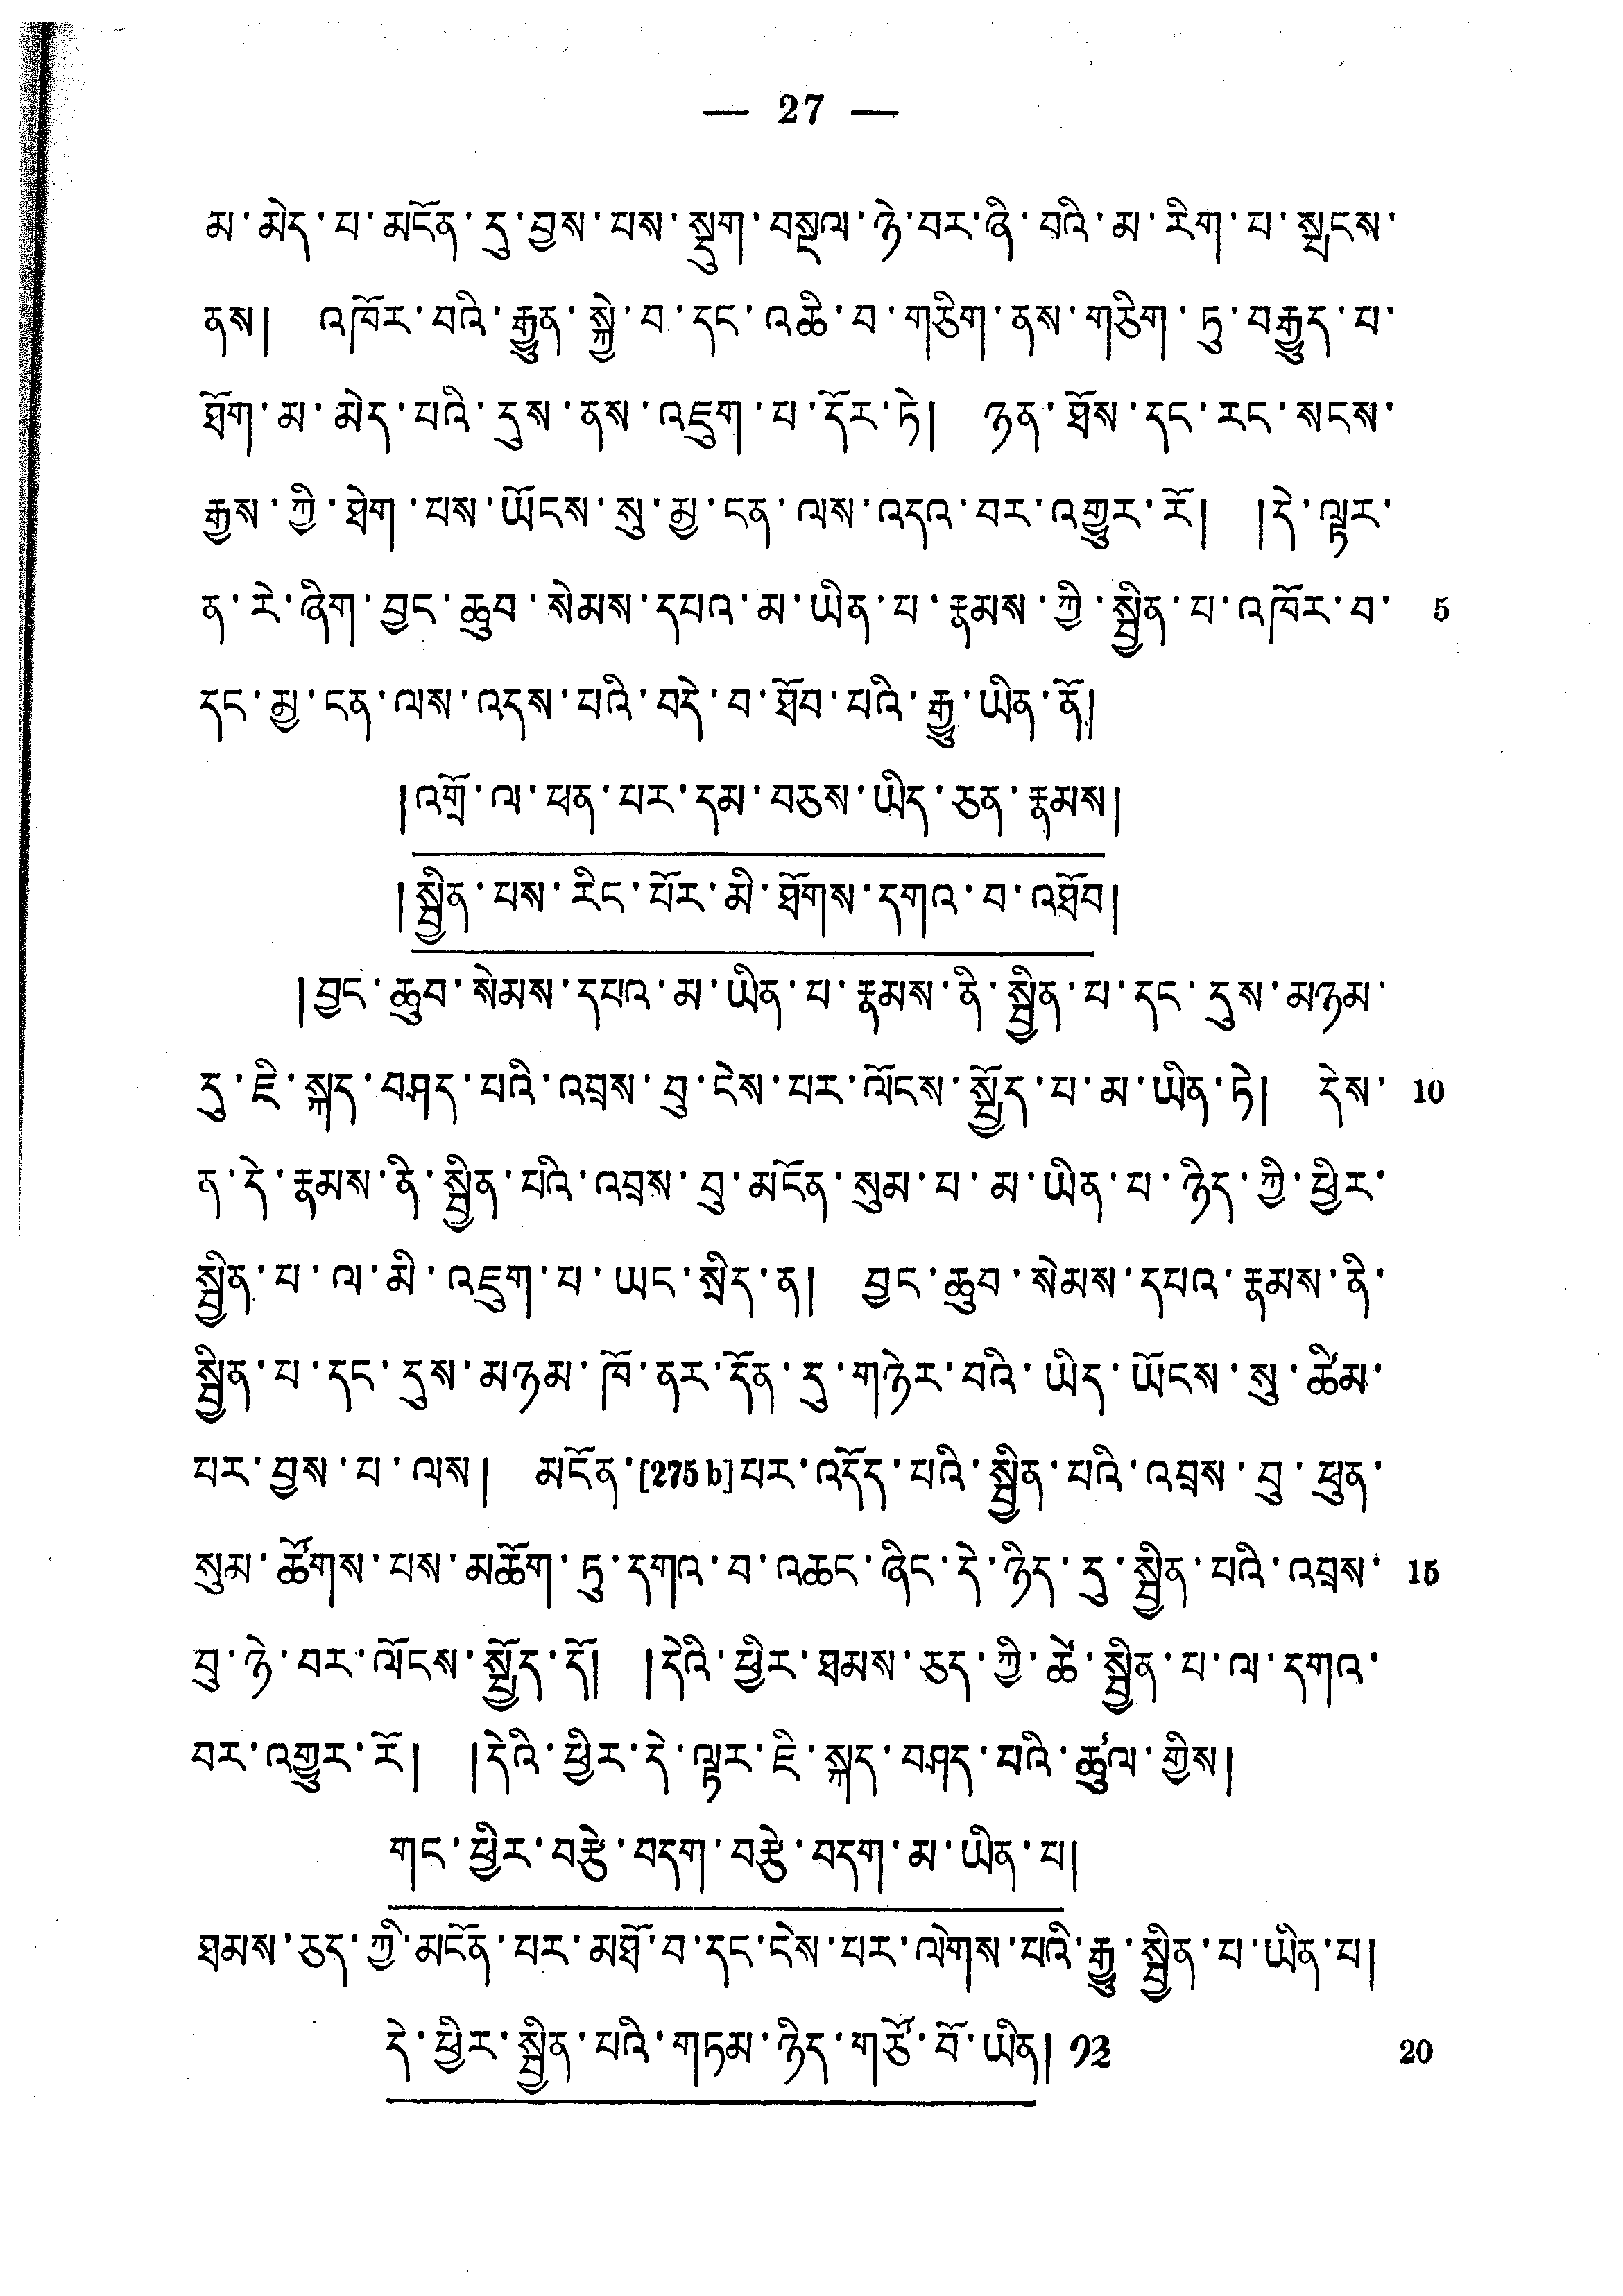 — 27 —
མ་མེད་པ་མངོན་དུ་བྱས་པས་སྡུག་བསྔལ་ཉེ་བར་ཞི་བའི་མ་རིག་པ་སྤངས་
ནས། འཁོར་བའི་རྒྱུན་སྐྱེ་བ་དང་འཆི་བ་གཅིག་ནས་གཅིག་ཏུ་བརྒྱུད་པ་
ཐོག་མ་མེད་པའི་དུས་ནས་འཇུག་པ་དོར་ཏེ། ཉན་ཐོས་དང་རང་སངས་
རྒྱས་ཀྱི་ཐེག་པས་ཡོངས་སུ་མྱ་ངན་ལས་འདའ་བར་འགྱུར་རོ། །དེ་ལྟར་
ན་རེ་ཞིག་བྱང་ཆུབ་སེམས་དཔའ་མ་ཡིན་པ་རྣམས་ཀྱི་སྦྱིན་པ་འཁོར་བ་ 5
དང་མྱ་ངན་ལས་འདས་པའི་བདེ་བ་ཐོབ་པའི་རྒྱུ་ཡིན་ནོ།
།འགྲོ་ལ་ཕན་པར་དམ་བཅས་ཡིད་ཅན་རྣམས།
།སྦྱིན་པས་རིང་པོར་མི་ཐོགས་དགའ་བ་འཐོབ།
།བྱང་ཆུབ་སེམས་དཔའ་མ་ཡིན་པ་རྣམས་ནི་སྦྱིན་པ་དང་དུས་མཉམ་
དུ་ཇི་སྐད་བཤད་པའི་འབྲས་བུ་ངེས་པར་ལོངས་སྤྱོད་པ་མ་ཡིན་ཏེ། དེས་ 10
ན་དེ་རྣམས་ནི་སྦྱིན་པའི་འབྲས་བུ་མངོན་སུམ་པ་མ་ཡིན་པ་ཉིད་ཀྱི་ཕྱིར་
སྦྱིན་པ་ལ་མི་འཇུག་པ་ཡང་སྲིད་ན། བྱང་ཆུབ་སེམས་དཔའ་རྣམས་ནི་
སྦྱིན་པ་དང་དུས་མཉམ་ཁོ་ནར་དོན་དུ་གཉེར་བའི་ཡིད་ཡོངས་སུ་ཚིམ་
པར་བྱས་པ་ལས། མངོན་[275b]པར་འདོད་པའི་སྦྱིན་པའི་འབྲས་བུ་ཕུན་
སུམ་ཚོགས་པས་མཆོག་ཏུ་དགའ་བ་འཆང་ཞིང་དེ་ཉིད་དུ་སྦྱིན་པའི་འབྲས་ 15
བུ་ཉེ་བར་ལོངས་སྤྱོད་དོ། །དེའི་ཕྱིར་ཐམས་ཅད་ཀྱི་ཚེ་སྦྱིན་པ་ལ་དགའ་
བར་འགྱུར་རོ། །དེའི་ཕྱིར་དེ་ལྟར་ཇི་སྐད་བཤད་པའི་ཚུལ་གྱིས།
གང་ཕྱིར་བརྩེ་བདག་བརྩེ་བདག་མ་ཡིན་པ།
ཐམས་ཅད་ཀྱི་མངོན་པར་མཐོ་བ་དང་ངེས་པར་ལེགས་པའི་རྒྱུ་སྦྱིན་པ་ཡིན་པ།
དེ་ཕྱིར་སྦྱིན་པའི་གཏམ་ཉིད་གཙོ་བོ་ཡིན། ༡༣ 20